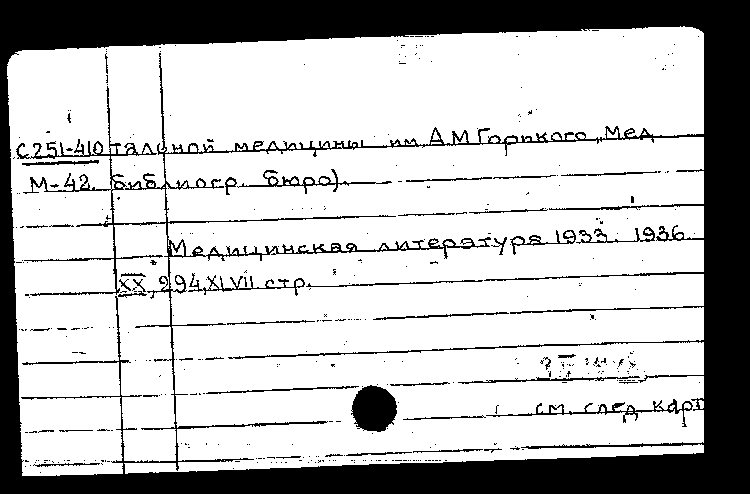 С251-410 тальной медицины им. А.М Горького „Мед.
М-42. библиогр. бюро).
Медицинская литература 1933. 1936
XX, 294, XLVII стр.
см. след. карт